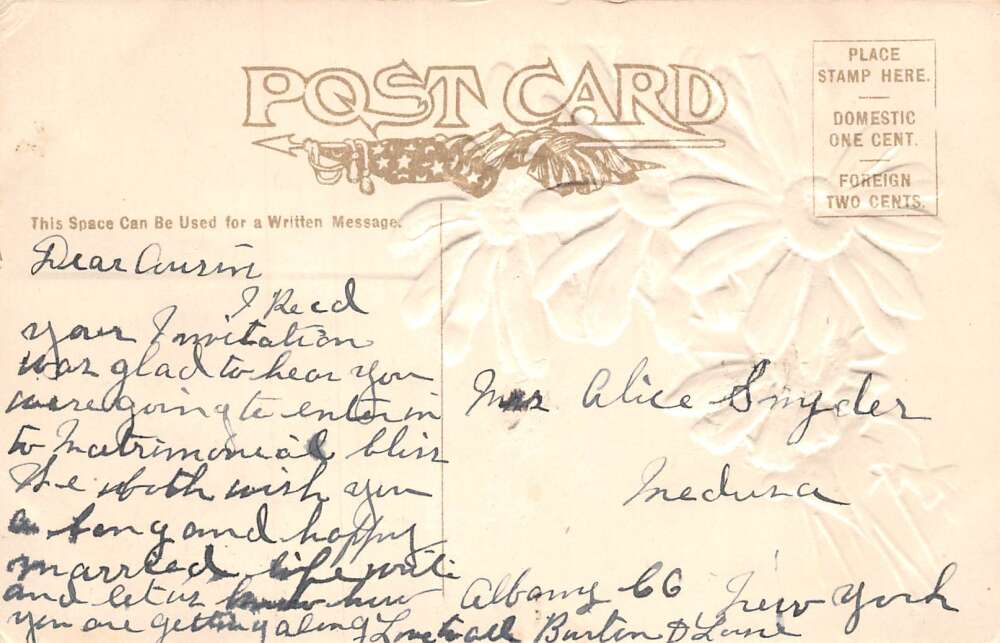 POST CARD
PLACE
STAMP HERE.
DOMESTIC
ONE CENT.
FOREIGN
TWO CENTS.
This Space Can Be Used for a Written Message.
Dear Cousin
I Recd
your Invitation
was glad to hear you
were going to enter in
to Matrimonial bliss
We both wish you
a long and happy
married life write
and let us know how
you are getting along Love to all Burton &
Mrs Alice Snyder
Medusa
Albany Co New York